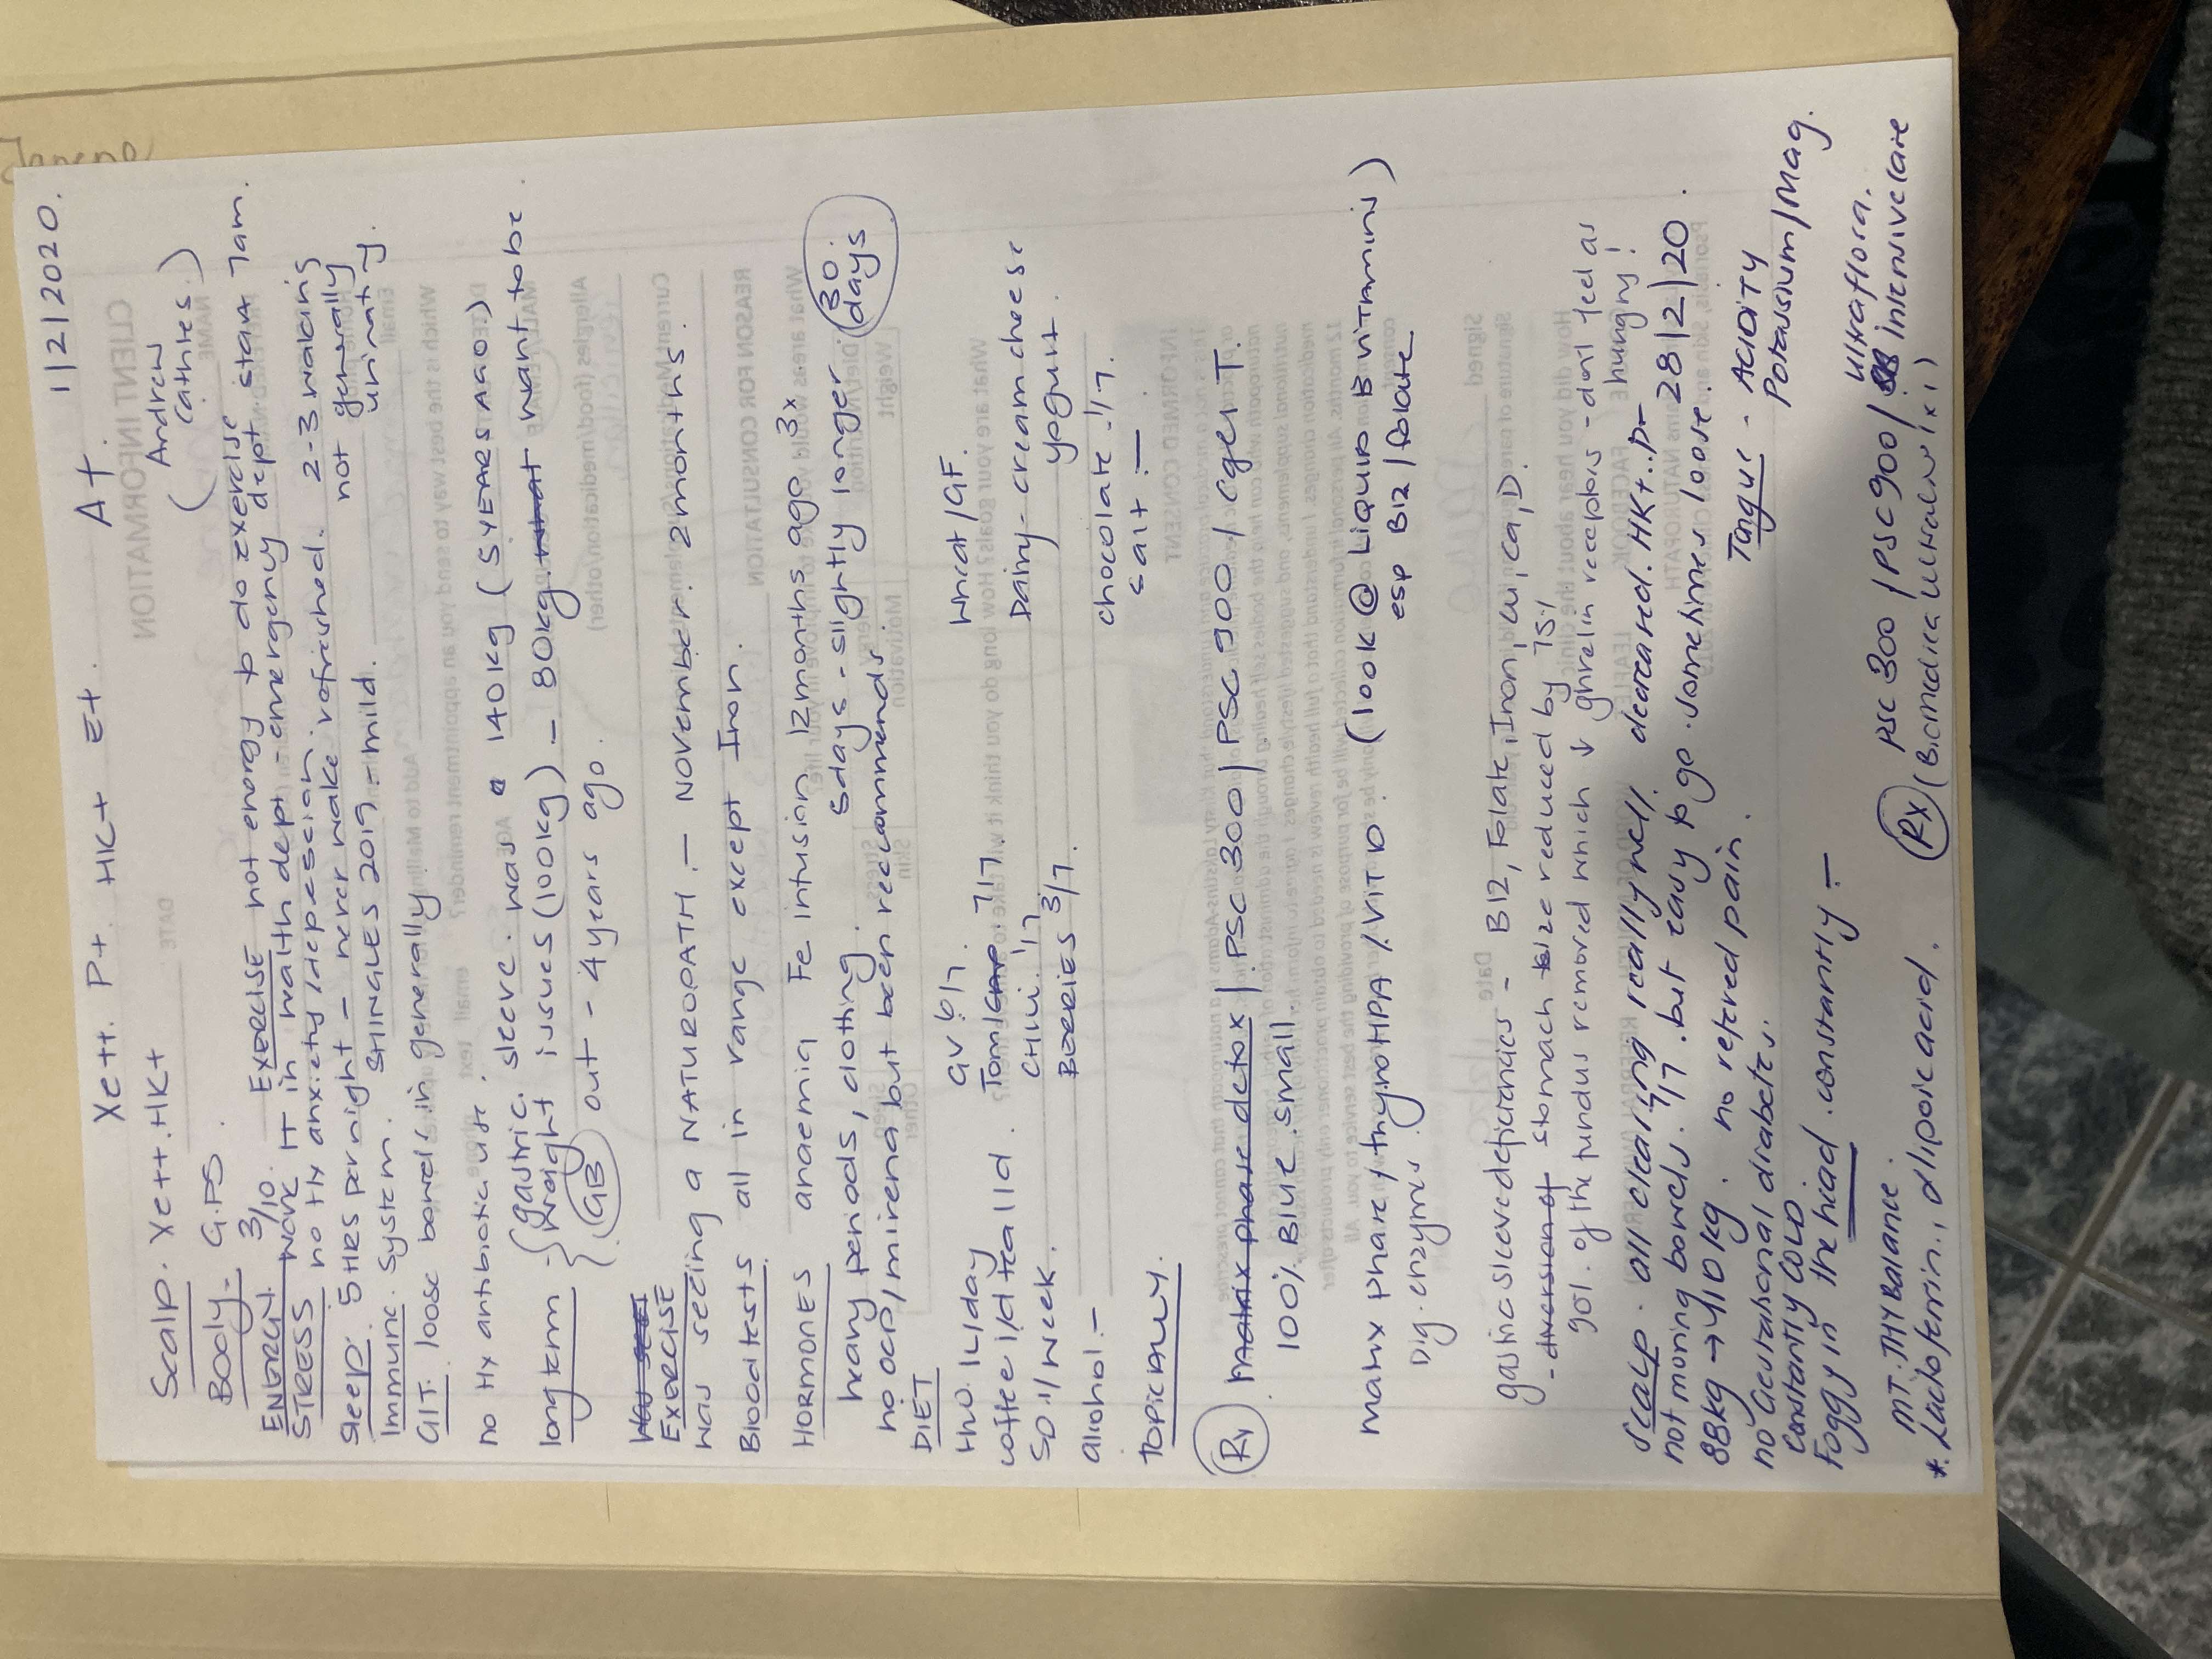 Xe++. P+ HK+ E+. A+. 1/2/2020.
Scalp. Xe++.HK+
Andrew
(Cathies.)
Body - G.PS.
ENERGY. 3/10. EXERCISE not energy to do exercise
STRESS work IT in health dept - emergency dept. start 7am.
no Hx anxiety/depession.
Sleep. 5HRS per night - never wake refreshed. 2-3 waking
not generally
urinating.
Immune System. SHINGLES 2019 - mild.
GIT. loose bowels in generally.
no Hx antibiotic use.
long term - { gastric sleeve. was 140kg (5YEARS AGO)
{ weight issues (100kg) - 80kg what want to be.
GB out - 4 years ago.
EXERCISE
was seeing a NATUROPATH. - NOVEMBER. 2 months.
Blood tests all in range except Iron.
HORMONES anaemia Fe infusion 12months ago 3x
heavy periods, clotting. 5days - slightly longer. 30 days
no OCP/mirena but been recommended.
DIET
H2O. 1L/day GV 6/7. Wheat/GF.
coffee 1/d tea 11d. Tom/cap 7/7. Dairy - cream cheese
SD .11 week. CHILLI. 1/7 yogurt.
alcohol. - BERRIES 3/7. chocolate .1/7.
salt. -
TOPICALLY.
Rx Matrix phase detox | PSC 300 | PSC 900 | Agent T.
100% Blue. small.
Matrix phase / thyroHPA / VIT D. (look @ Liquid B vitamins)
esp B12/folate
Dig. enzymes.
gastric sleeve deficiencies - B12, Folate, Iron, Cu, Ca, D.
- diversion of stomach size reduced by 75%
got. of the fundus removed which ↓ ghrelin receptors - dont feel as
hungry!
Scalp. all clearing really well. decreased. HK+. P- 28/2/20.
not moving bowels. 4/7. but easy to go. sometimes loose.
88kg → 110kg. no refered pain.
no Gestational diabetes. Tongue - ACIDITY
Constantly COLD. Potassium/Mag.
Foggy in the head. constantly -
MT. THY Balance. Rx PSC 300 / PSC 900 / Ultraflora.
intensive care
* Lactoferrin, α lipoic acid. (Biomedica